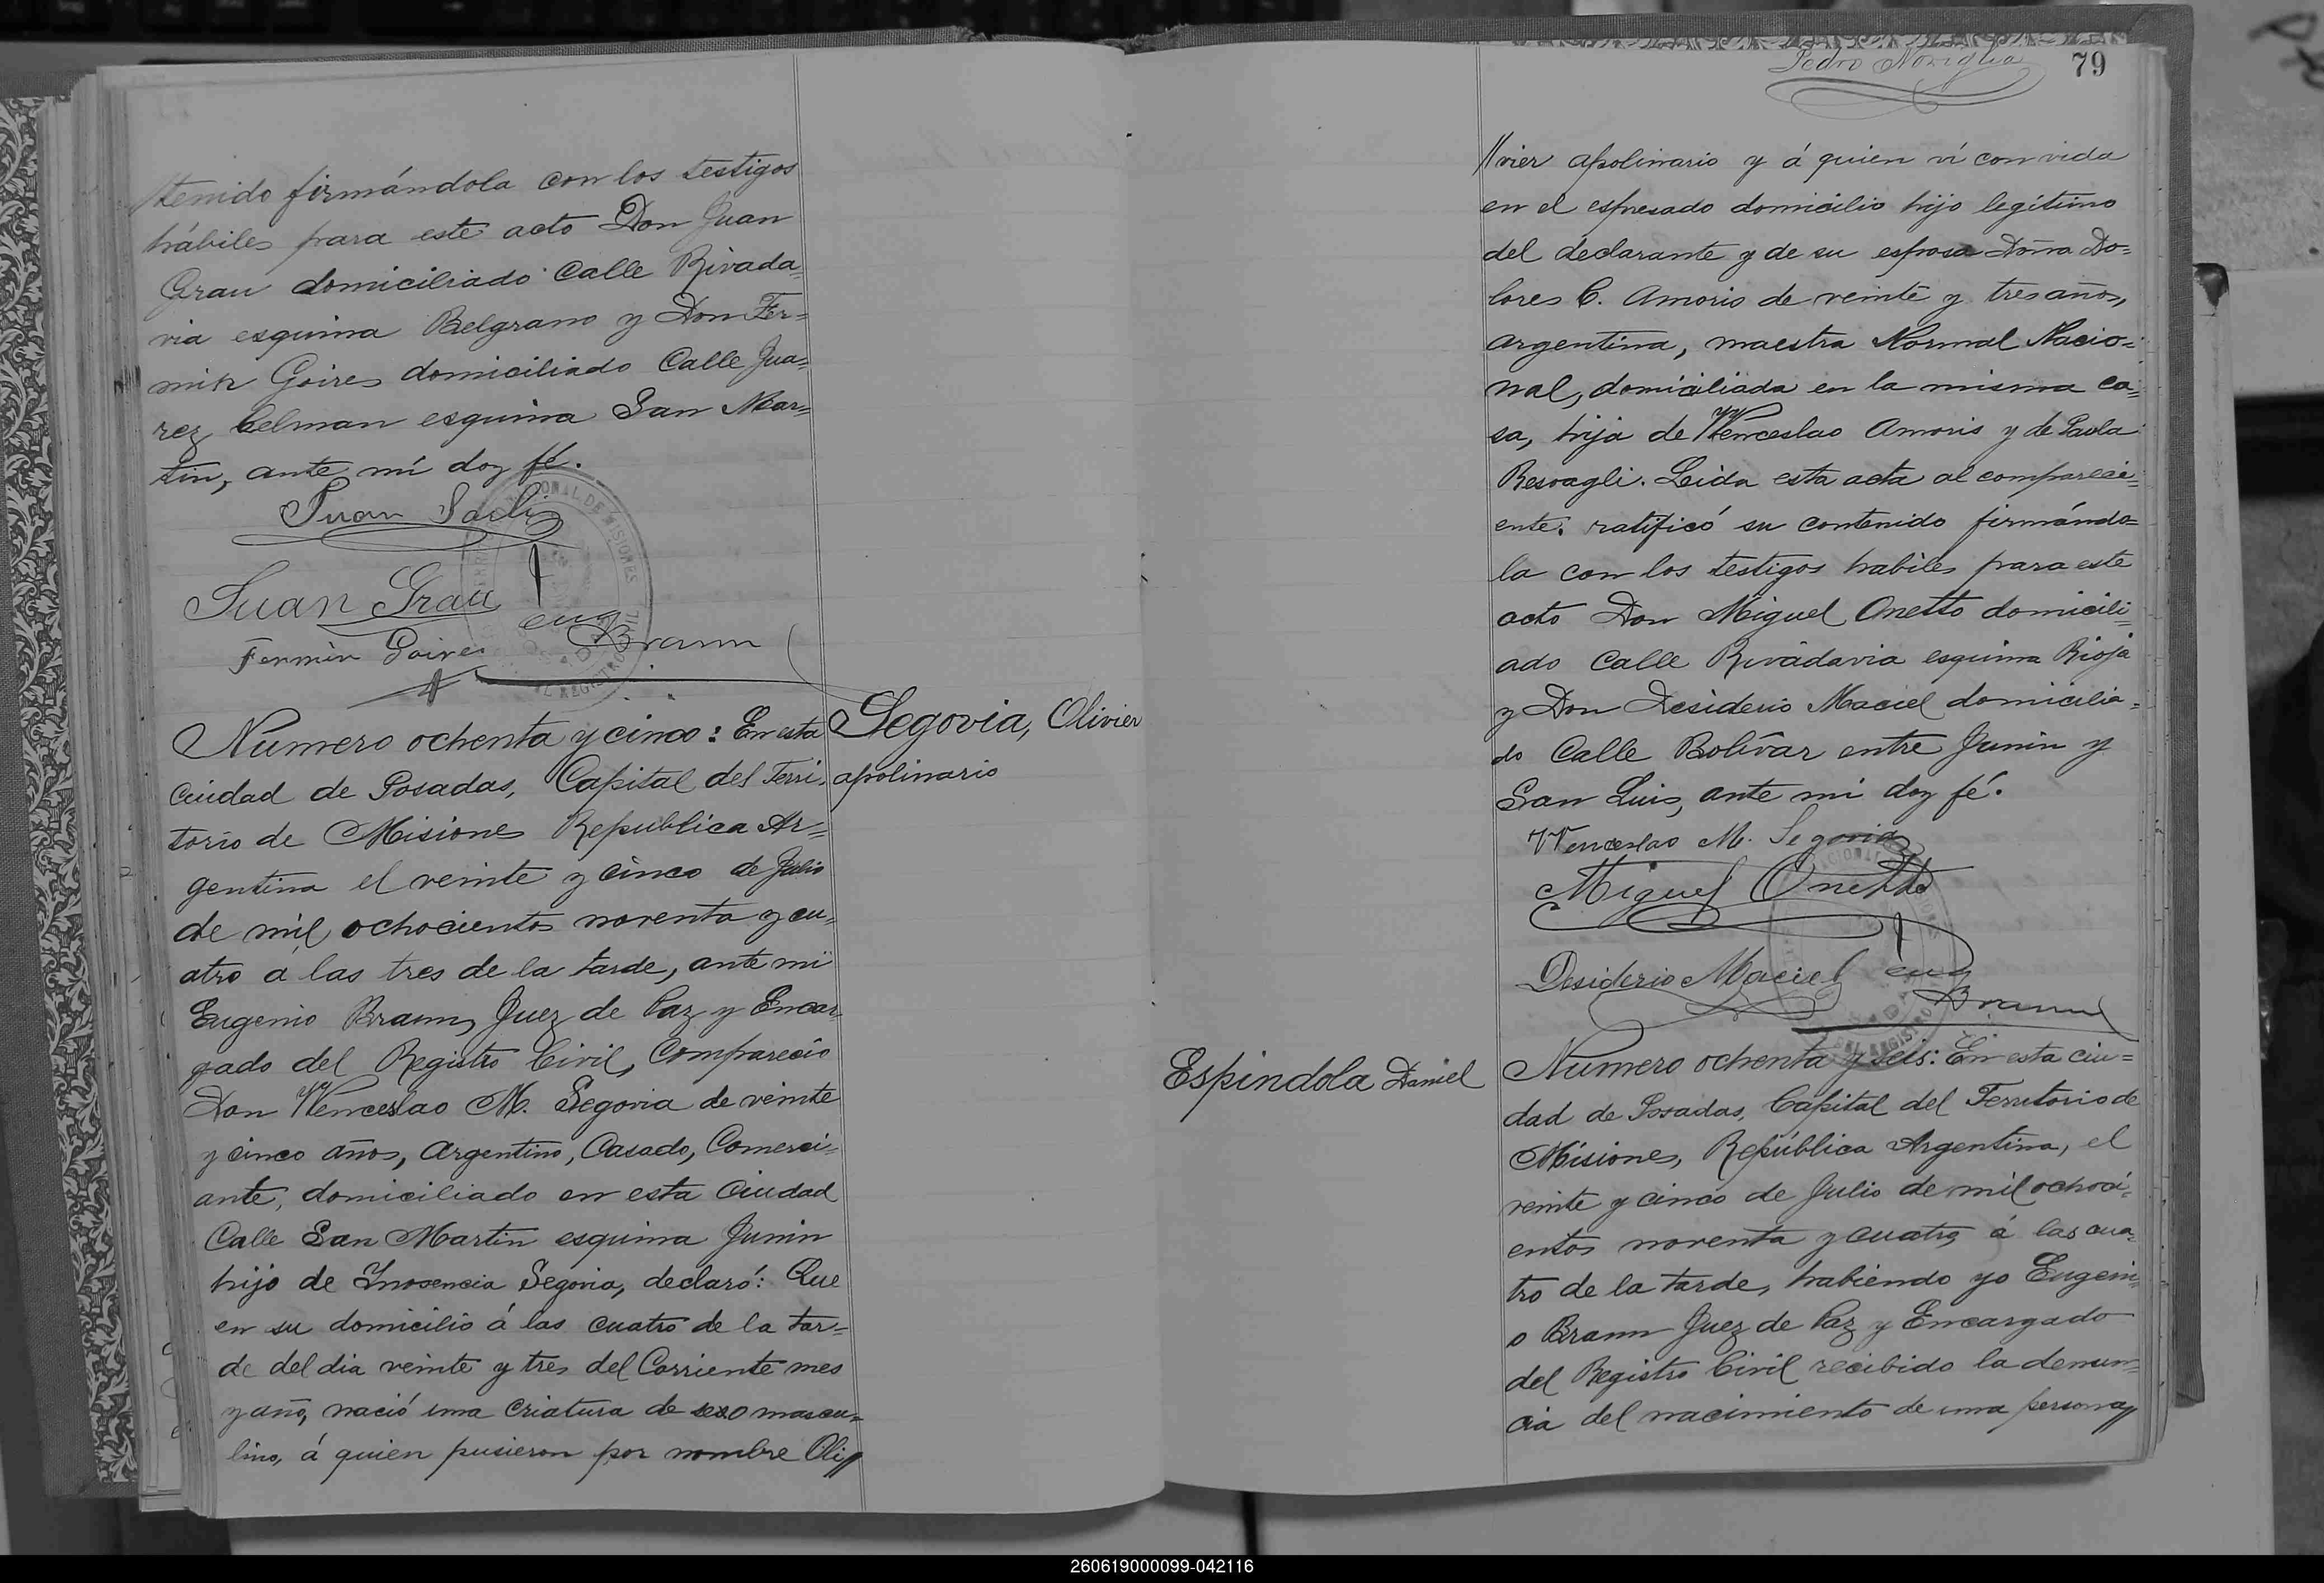 tenido firmándola con los testigos
hábiles para este acto Don Juan
Grau domiciliado Calle Rivada=
via esquina Belgrano y Don Fer=
min Goires domiciliado Calle Jua=
rez Celman esquina San Mar=
tin, ante mí doy fé.
Juan
Juan Grau
Eug Braun
Fermin Goires
Numero ochenta y cinco: En esta
Segovia, Olivier
apolinario
Ciudad de Posadas, Capital del Terri=
torio de Misiones Republica Ar=
gentina el veinte y cinco de Julio
de mil ochocientos noventa y cu=
atro á las tres de la tarde, ante mi
Eugenio Braun, Juez de Paz y Encar=
gado del Registro Civil, Comparecio
Don Wenceslao M. Segovia de veinte
y cinco años, Argentino, Casado, Comerci=
ante, domiciliado en esta Ciudad
Calle San Martin esquina Junin
hijo de Inosencia Segovia, declaró: Que
en su domicilio á las cuatro de la tar=
de del dia veinte y tres del Corriente mes
y año, nació una Criatura de sexo mascu=
lino, á quien pusieron por nombre Oli//
Pedro Noviglia
79
//vier apolinario y á quien ví con vida
en el espresado domicilio hijo legítimo
del declarante y de su esposa Doña Do=
lores C. Amoris de veinte y tres años,
argentina, maestra Normal Nacio=
nal, domiciliada en la misma ca=
sa, hija de Wenceslao Amoris y de Paula
Resoagli. Leida esta acta al compareci=
ente. ratificó su contenido firmándo=
la con los testigos habiles para este
acto Don Miguel Onetto domicili=
ado Calle Rivadavia esquina Rioja
y Don Desiderio Maciel domicilia=
do Calle Bolívar entre Junin y
San Luis, ante mi doy fé.
Wenceslao M. Segovia
Miguel Onetto
Desiderio Maciel
Eug Braun
Espindola Daniel
Numero ochenta y seis: En esta ciu=
dad de Posadas, Capital del Territorio de
Misiones, República Argentina, el
veinte y cinco de Julio de mil ochoci=
entos noventa y cuatro, á las cua=
tro de la tarde, habiendo yo Eugeni=
o Braun Juez de Paz y Encargado
del Registro Civil recibido la denun=
cia del nacimiento de una persona//
260619000099-042116